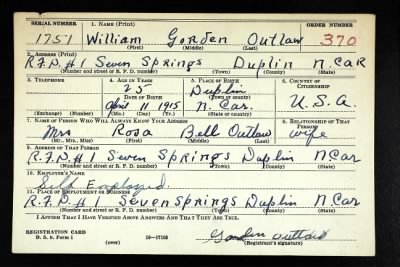 SERIAL NUMBER 1. NAME (Print) ORDER NUMBER
1751 William Gorden Outlaw 370
(First) (Middle) (Last)
2. ADDRESS (Print)
R.F.D #1 Seven Springs Duplin N. Car
(Number and street or R. F. D. number) (Town) (County) (State)
3. TELEPHONE 4. AGE IN YEARS 5. PLACE OF BIRTH 6. COUNTRY OF CITIZENSHIP
25 Duplin
DATE OF BIRTH (Town or county)
April 11 1915 N. Car. U.S.A.
(Exchange) (Number) (Mo.) (Day) (Yr.) (State or country)
7. NAME OF PERSON WHO WILL ALWAYS KNOW YOUR ADDRESS 8. RELATIONSHIP OF THAT PERSON
Mrs Rosa Bell Outlaw wife
(Mr., Mrs., Miss) (First) (Middle) (Last)
9. ADDRESS OF THAT PERSON
R.F.D #1 Seven Springs Duplin N. Car
(Number and street or R. F. D. number) (Town) (County) (State)
10. EMPLOYER'S NAME
Self Employed.
11. PLACE OF EMPLOYMENT OR BUSINESS
R.F.D #1 Seven Springs Duplin N. Car
(Number and street or R. F. D. number) (Town) (County) (State)
I AFFIRM THAT I HAVE VERIFIED ABOVE ANSWERS AND THAT THEY ARE TRUE.
REGISTRATION CARD
D. S. S. Form 1 (over) 16—17105 Gorden Outlaw
(Registrant's signature)